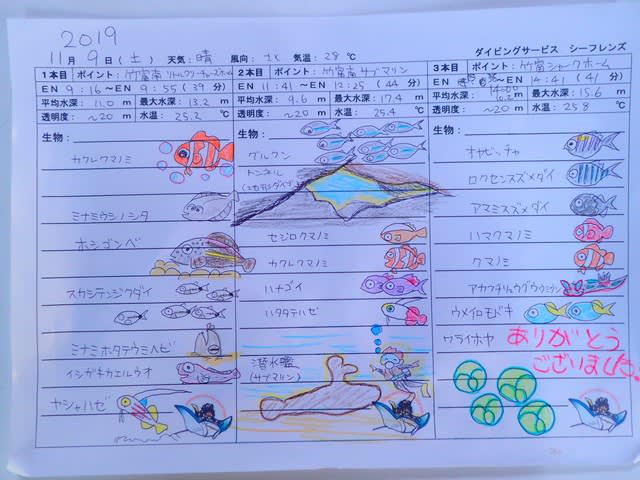 2019
11月 9日(土) 天気:晴 風向:北 気温:28℃ ダイビングサービス シーフレンズ
1本目 ポイント:竹富南
EN 9:16〜EN 9:55(39分)
平均水深:11.0 m 最大水深:13.2 m
透明度: 〜20 m 水温:25.2 ℃
生物:
カクレクマノミ
ミナミウシノシタ
ホシゴンベ
スカシテンジクダイ
ミナミホタテウミヘビ
イシガキカエルウオ
ヤシャハゼ
2本目 ポイント:竹富南サブマリン
EN 11:41〜EN 12:25(44分)
平均水深:9.6 m 最大水深:17.4 m
透明度: 〜20 m 水温:25.4 ℃
生物:
グルクン
トンネル
セジロクマノミ
カクレクマノミ
ハナゴイ
ハタタテハゼ
潜水艦
(サブマリン)
3本目 ポイント:竹富シャークホーム
EN 〜EN 14:41(41分)
平均水深: m 最大水深:15.6 m
透明度: 〜20 m 水温:25.8 ℃
生物:
オヤビッチャ
ロクセンスズメダイ
アマミスズメダイ
ハマクマノミ
クマノミ
アカククリ
ウメイロモドキ
ワライボヤ
ありがとう
ございました